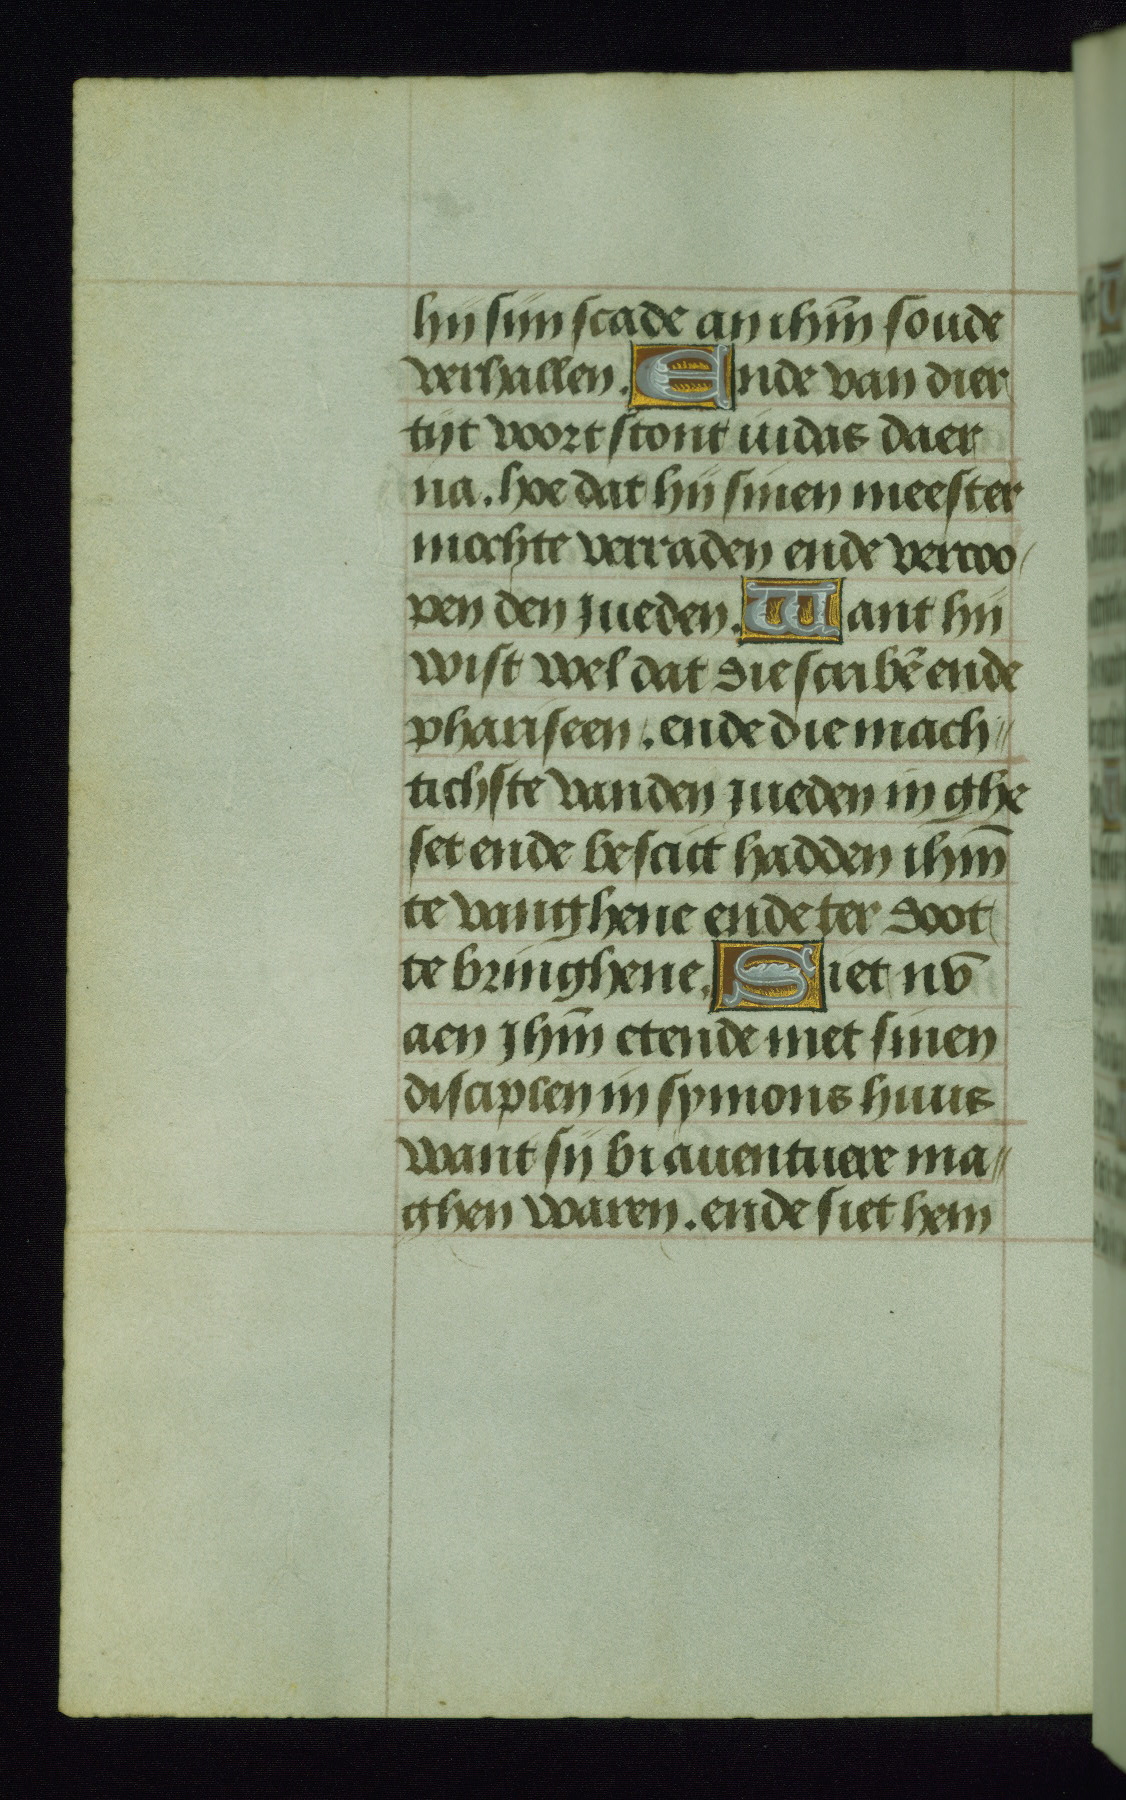 hij sijn scade an ihm̄ soude
verhallen. Ende van dier
tijt voort stont iudas daer
na. hoe dat hij sinen meester
mochte verraden ende vercoo/
pen den Jueden. Want hij
wist wel dat die scribē ende
phariseen. ende die mach//
tichste vanden Jueden in ghe
set ende bescict hadden ihm̄
te vanghene ende ter doot
te bringhene. Siet nv̄
aen Jhm̄ etende met sinen
disciplen in symons huus
want sij bi auentuere ma//
ghen waren. ende siet hem